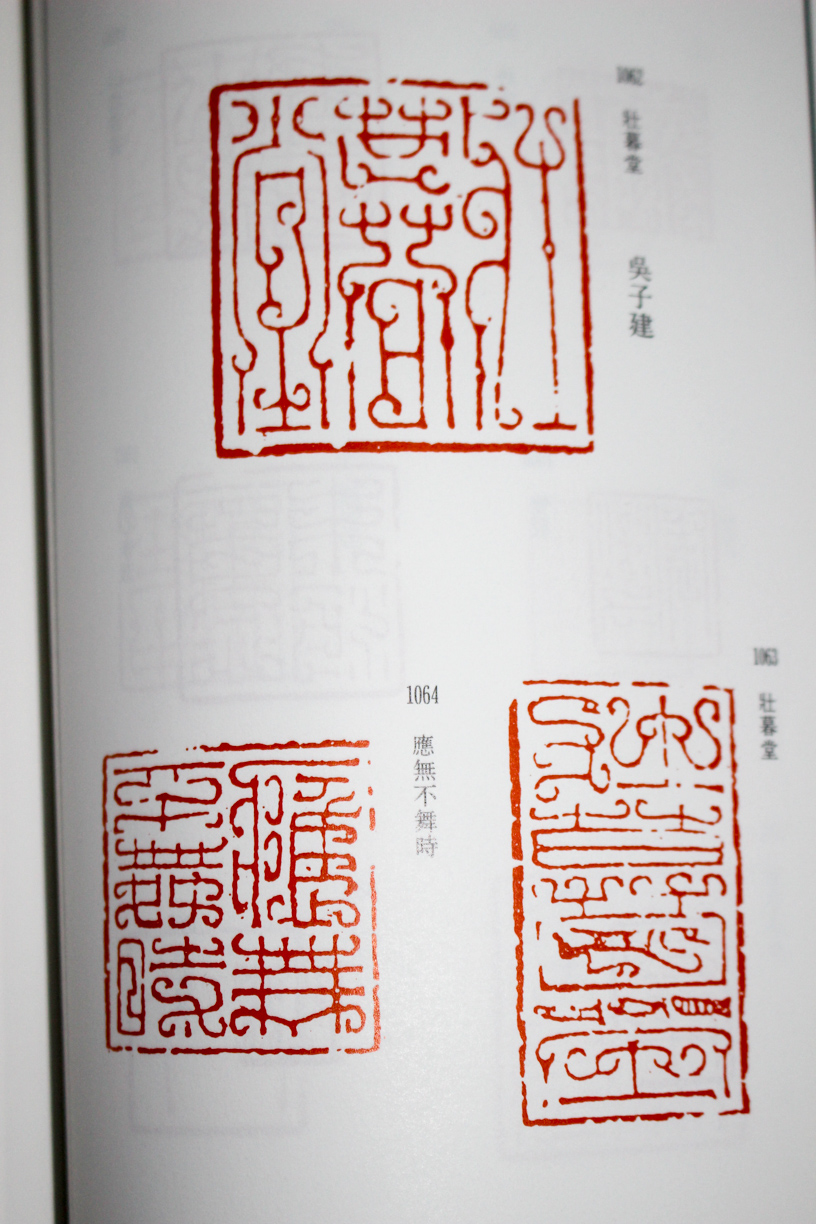 1062 壯暮堂 吳子建
1063 壯暮堂
1064 應無不舞時